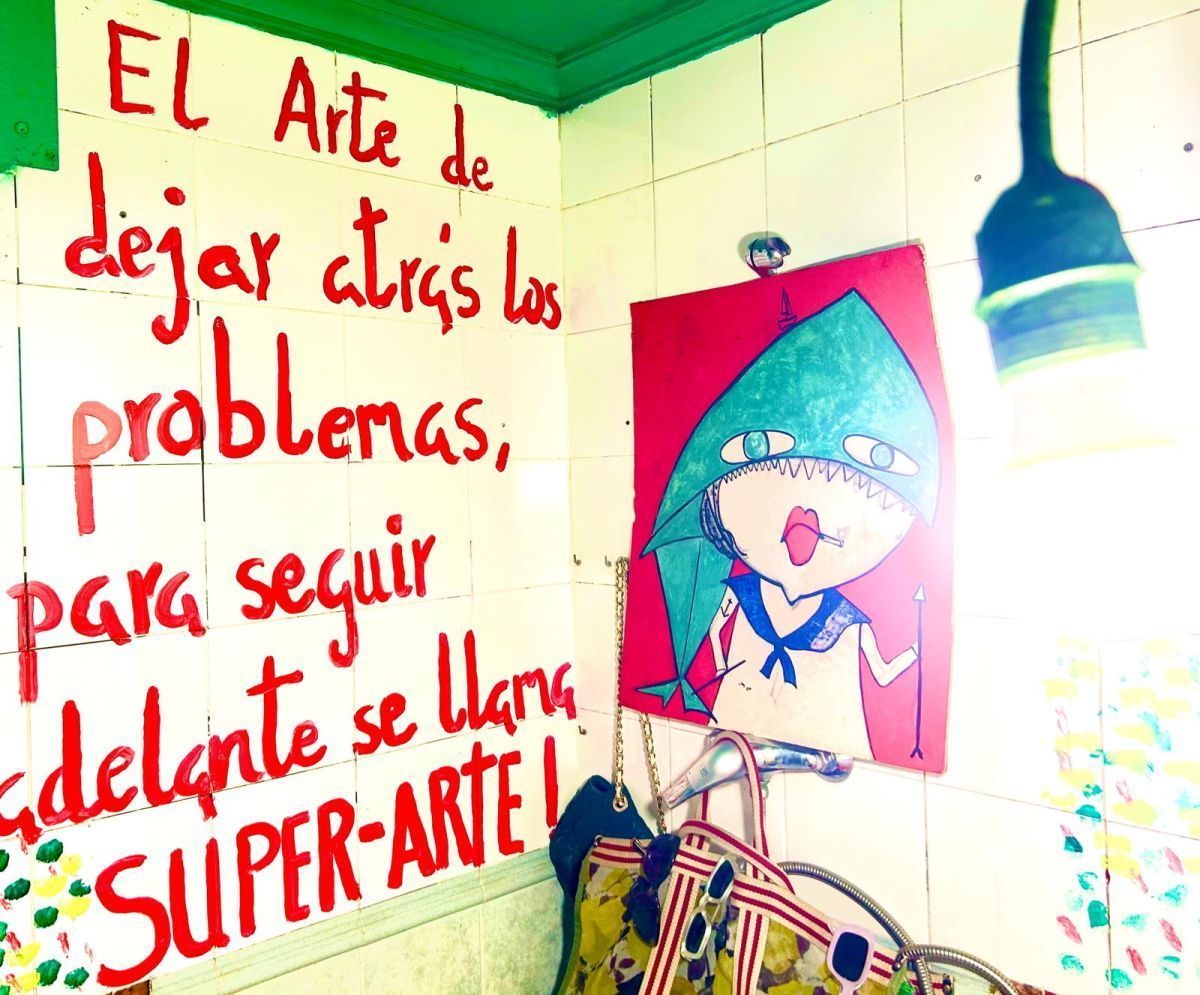 El Arte de
dejar atrás los
problemas,
para seguir
adelante se llama
SUPER-ARTE!